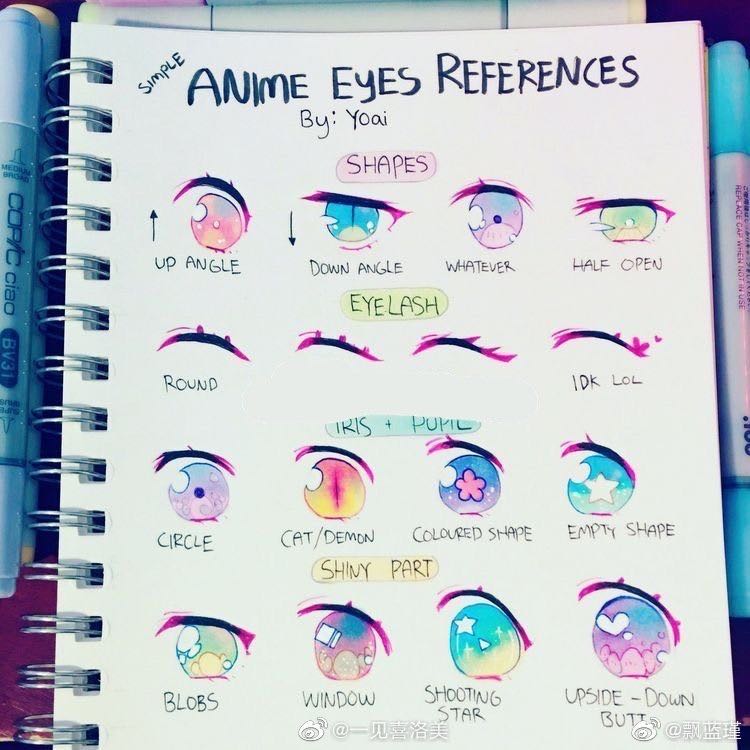 SIMPLE
ANIME EYES REFERENCES
By: Yoai
SHAPES
UP ANGLE
DOWN ANGLE
WHATEVER
HALF OPEN
EYELASH
ROUND
IDK LOL
IRIS + PUPIL
CIRCLE
CAT/DEMON
COLOURED SHAPE
EMPTY SHAPE
SHINY PART
BLOBS
WINDOW
SHOOTING
STAR
UPSIDE-DOWN
BUTT
MEDIUM
BROAD
COPIC ciao
BV31
REPLACE CAP WHEN NOT IN USE
@一见喜洛美
@飘蓝瑾